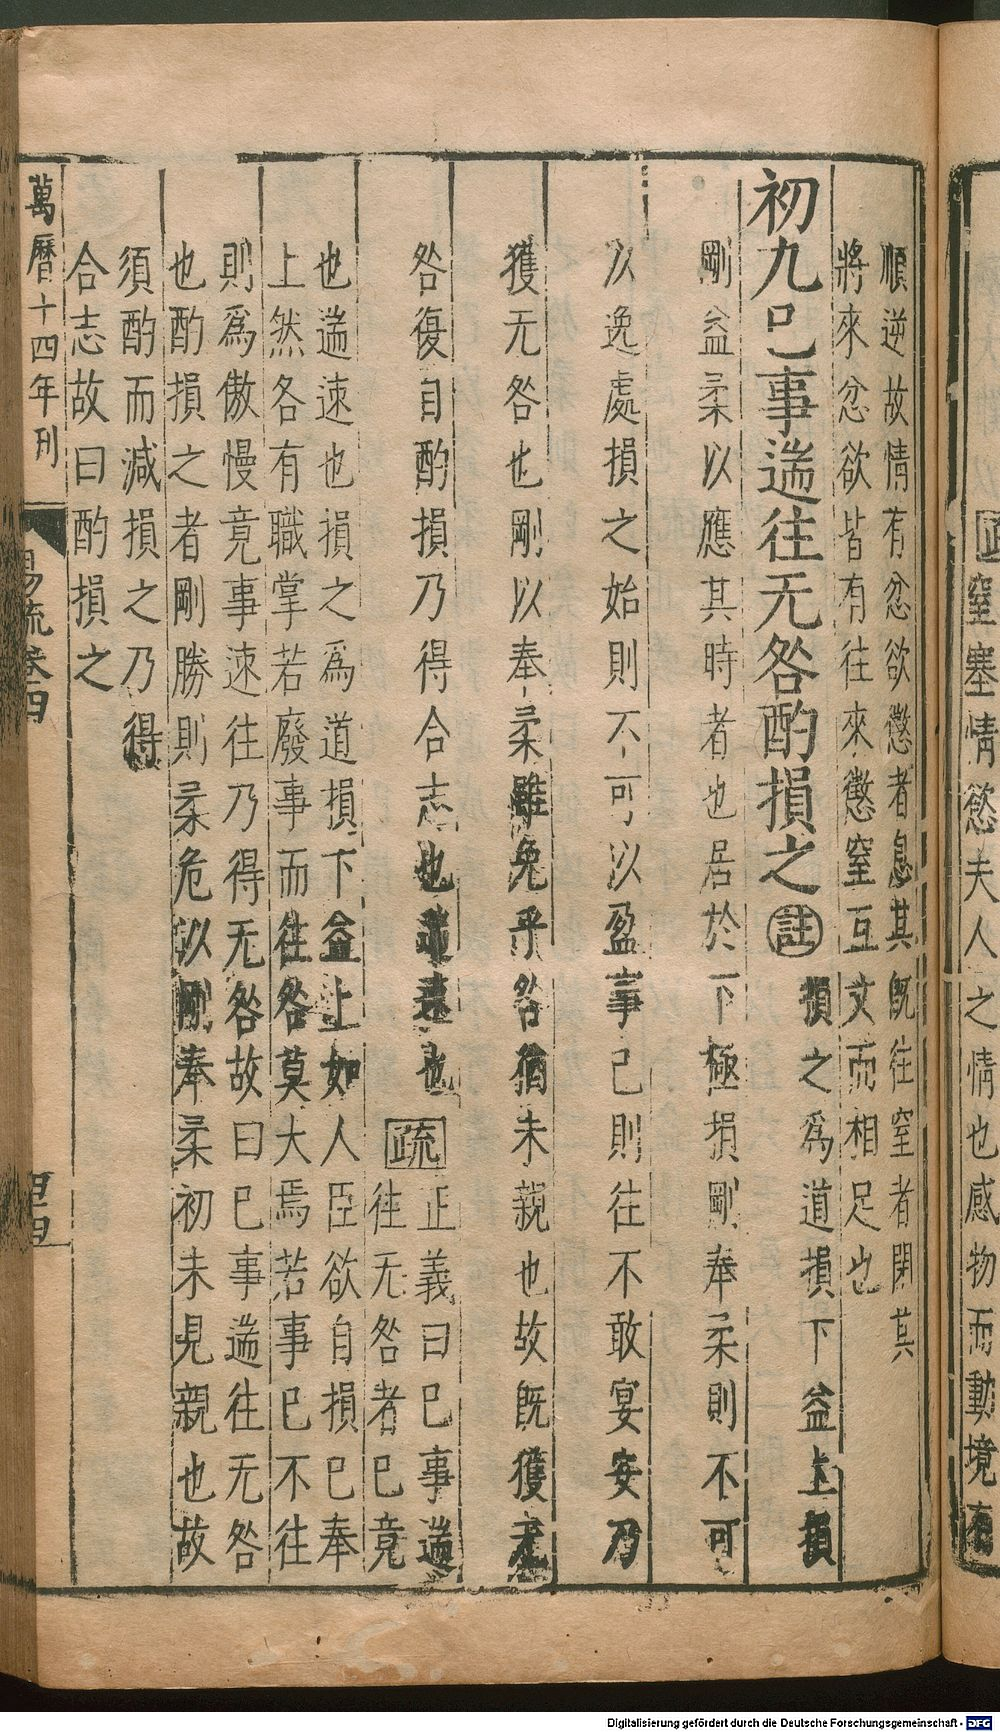 窒塞情慾夫人之情也感物而動境有
順逆故情有忿欲懲者息其既往窒者閉其
將來忿欲皆有往來懲窒互文而相足也
初九巳事遄往无咎酌損之註損之爲道損下益上損
剛益柔以應其時者也居於下極損剛奉柔則不可
以逸處損之始則不可以盈事已則往不敢宴安乃
獲无咎也剛以奉柔雖免乎咎猶未親也故既獲无
咎復自酌損乃得合志也遄速也疏
正義曰巳事遄
往无咎者巳竟
也遄速也損之爲道損下益上如人臣欲自損已奉
上然各有職掌若廢事而往咎莫大焉若事已不往
則爲傲慢竟事速往乃得无咎故曰巳事遄往无咎
也酌損之者剛勝則柔危以剛奉柔初未見親也故
須酌而減損之乃得
合志故曰酌損之
萬曆十四年刊
易疏卷四
Digitalisierung gefördert durch die Deutsche Forschungsgemeinschaft - DFG